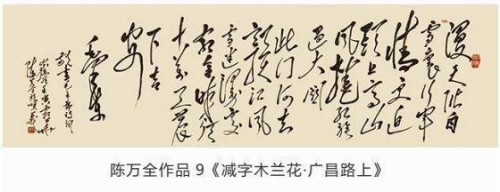 漫天皆白
雪里行军
情更迫
头上高山
风卷红旗
过大关
此行何去
赣江风
雪迷漫处
命令昨颁
十万工农
下吉
安
陈万全作品 9《减字木兰花·广昌路上》